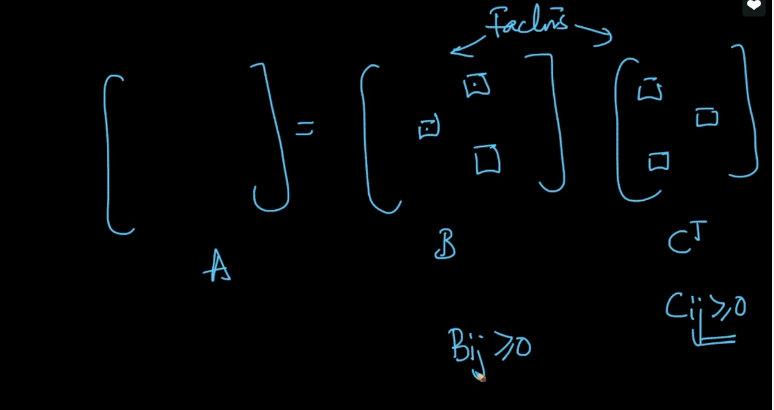 Factors
=
A
B
Cᵀ
Cij ≥ 0
Bij ≥ 0